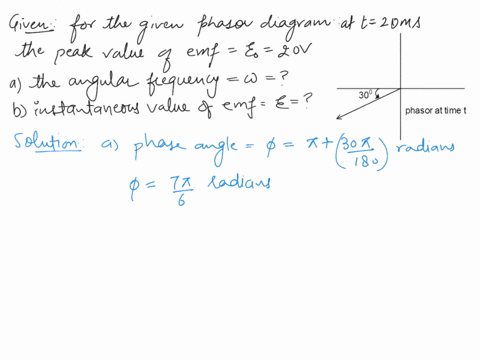 Given: for the given phasor diagram at t = 20ms
the peak value of emf = ℰ₀ = 20V
a) the angular frequency = ω = ?
b) instantaneous value of emf = ℰ = ?
30°
phasor at time t
Solution: a) phase angle = ϕ = π + (30π/180) radians
ϕ = 7π/6 radians